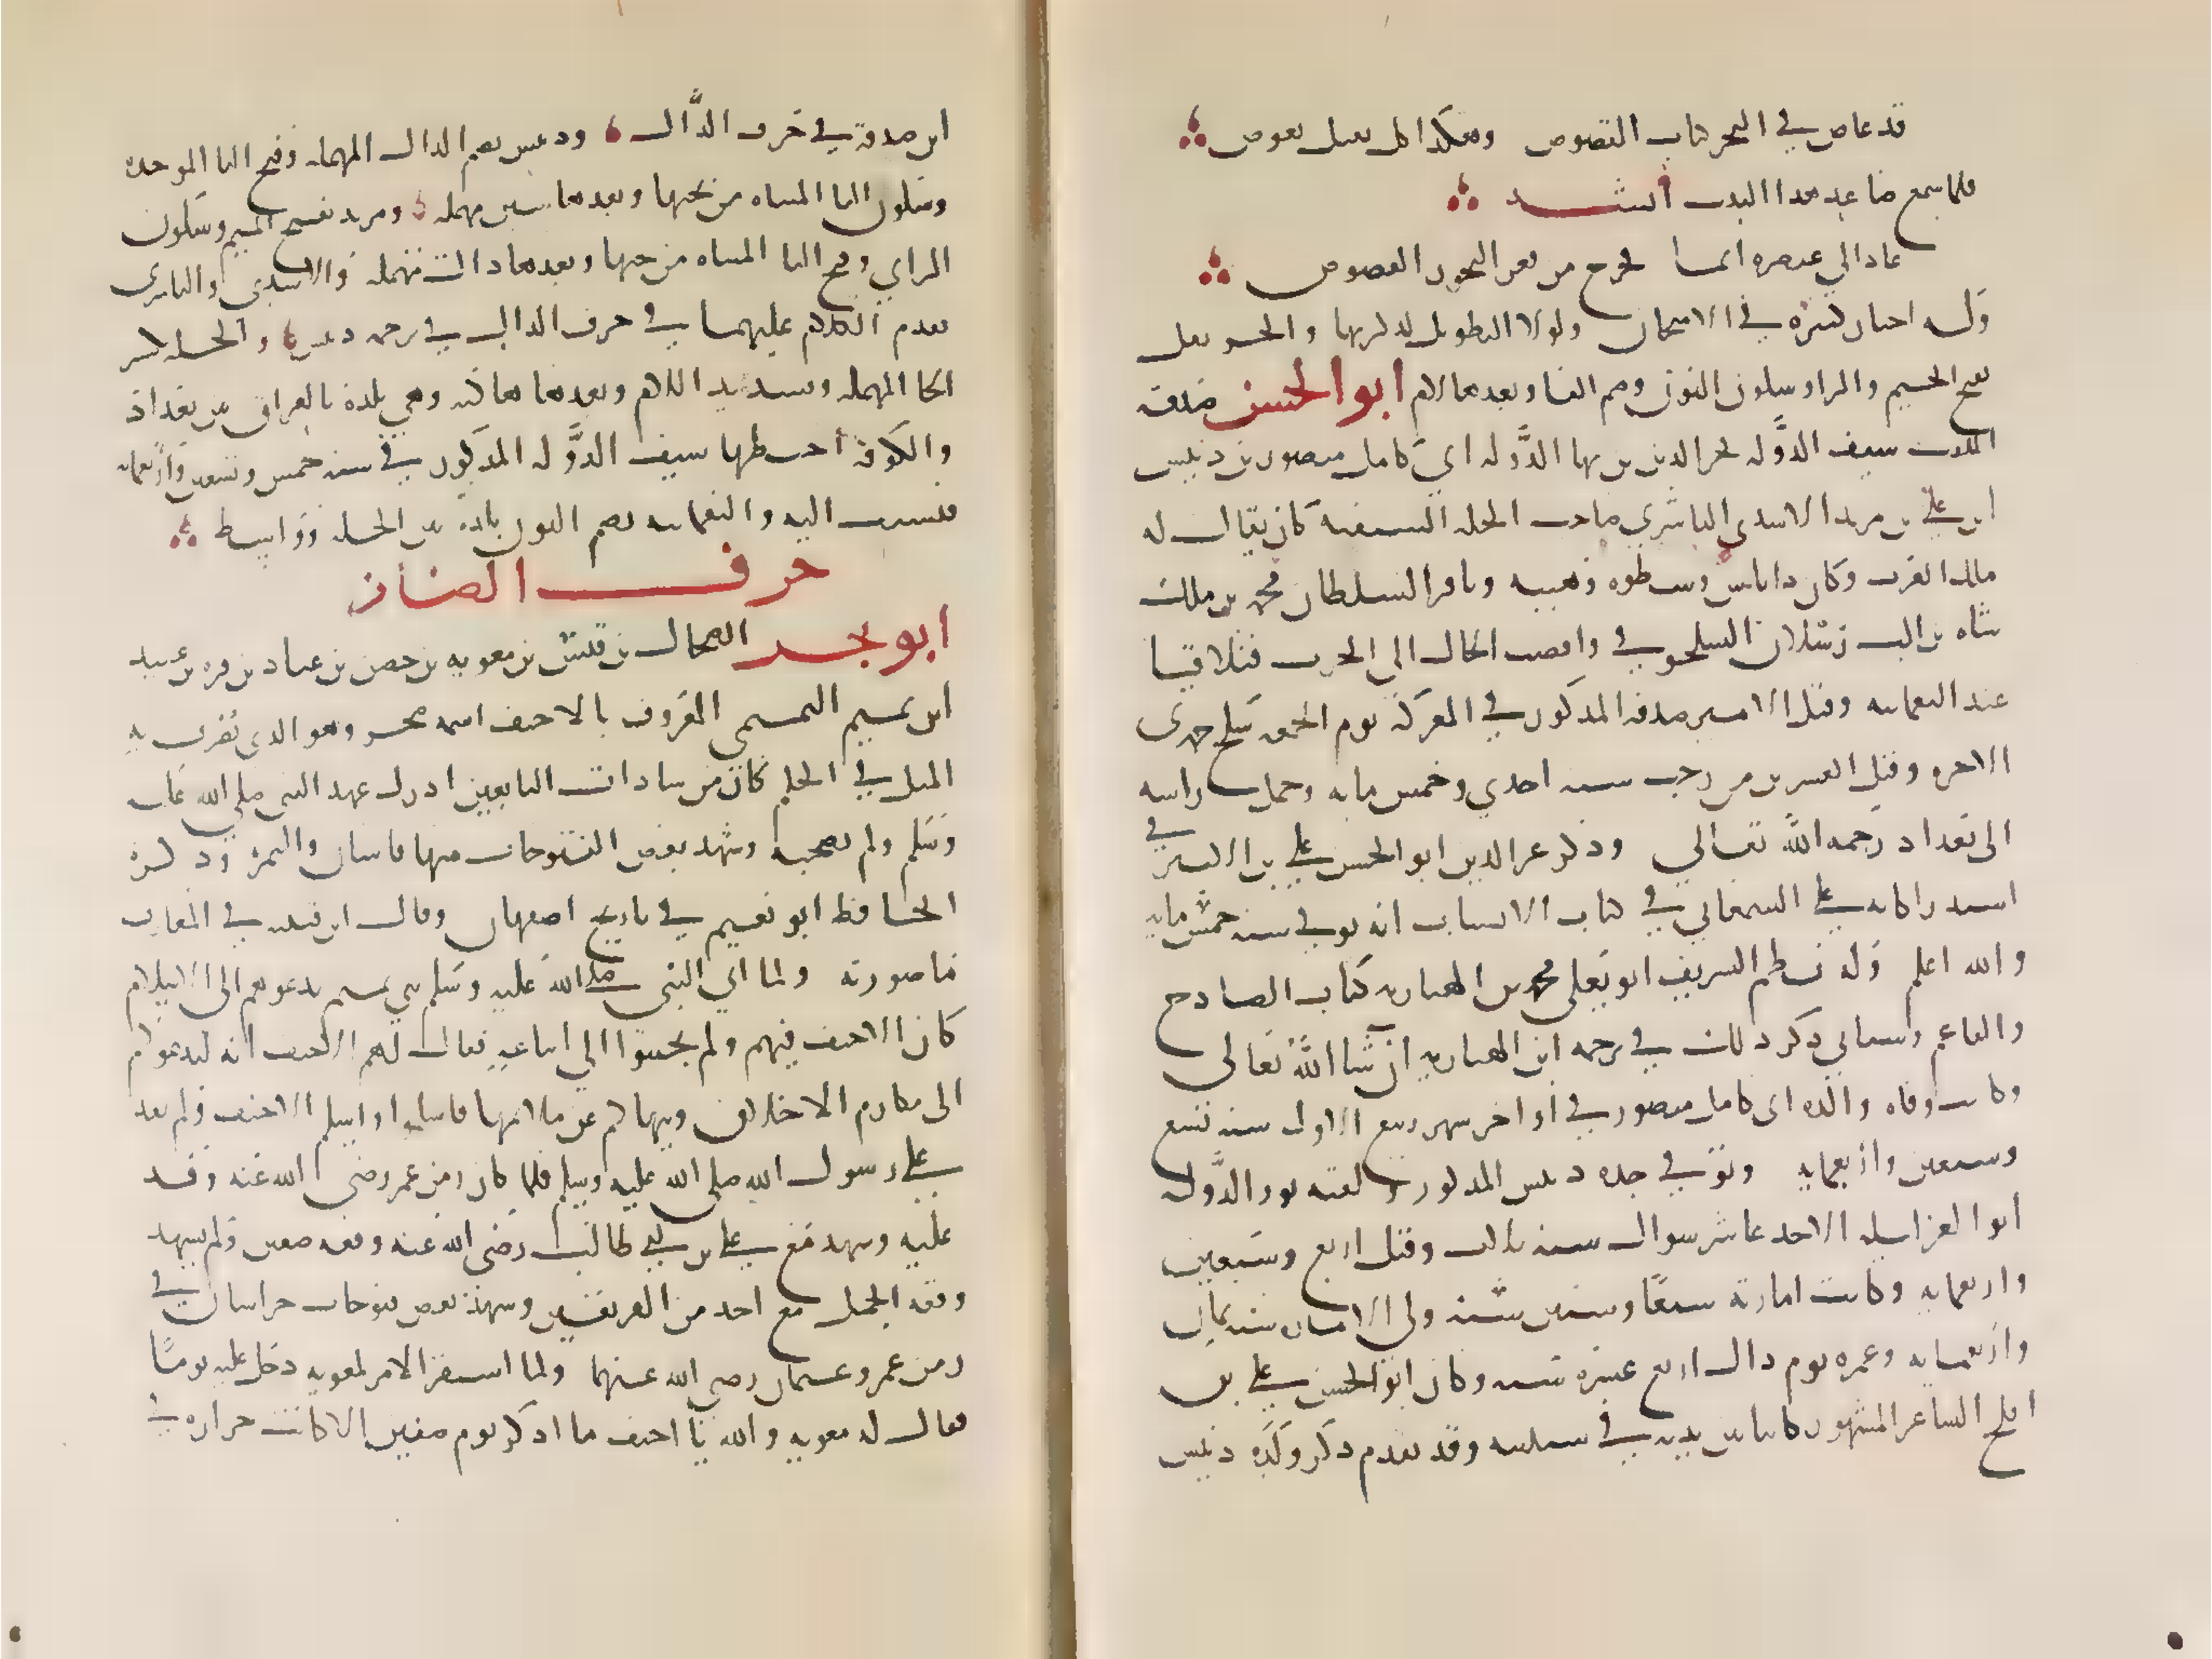 قد غاص في البحر كتاب الفصوص وهكذا كل ثقيل يغوص
فلما سمع صاعد هذا البيت أنشد
عاد الى عنصره انما يخرج من قعر البحور الفصوص
وله اخبار كثيرة في الامتحان ولولا التطويل لذكرتها والجرنفل
بفتح الجيم والرا وسكون النون وضم الفا وبعدها لام ابو الحسن صدقة
الملقب سيف الدَّولة فخر الدين بن بها الدَّولة ابي كامل منصور بن دبيس
ابن علي بن مزيد الاسدي الناشري صاحب الحلة السيفية كان يقال له
ملك العرب وكان ذا باس وسطوه وهيبه ونافر السلطان محمد بن ملك
شاه بن الب رسلان السلجوقي وافضت الحال الى الحرب فتلاقيا
عند النعمانيه وقتل الامير صدقة المذكور في المعركة يوم الجمعه سلخ جمدى
الاخره وقيل العشرين من رجب سنه احدي وخمس مايه وحمل راسه
الى بغداد رحمه الله تعالى وذكر عز الدين ابو الحسن علي بن الاثير في
استدراكاته على السمعاني في كتاب الانساب انه توفي سنه خمس مايه
والله اعلم وله نظم الشريف ابو يعلى محمد بن الهباريه كتاب الصادح
والباغم وسياتي ذكر ذلك في ترجمه ابن الهباريه ان شا الله تعالى
وكانت وفاه والده ابى كامل منصور في اواخر شهر ربيع الاول سنه تسع
وسبعين واربعمايه وتوفي جده دبيس المذكور ولقبه نور الدَّولة
ابو الاغر ليله الاحد عاشر شوال سنه ثلاث وقيل اربع وسبعين
واربعمايه وكانت امارته سبعًا وستين سنه ولى الاماره سنه ثمان
واربعمايه وعمره يوم ذاك اربع عشرة سنه وكان ابو الحسن علي بن
افلح الشاعر المشهور كاتبا بين يديه في شبيبته وقد تقدم ذكر ولده دبيس
ابن صدقة في حرف الدَّال ودبيس بضم الدال المهملة وفتح البا الموحده
وسكون اليا المثناه من تحتها وبعدها سين مهمله ومزيد بفتح الميم وسكون
الزاي وفتح اليا المثناه من تحتها وبعدها دال مهملة والاسدي والناشرى
تقدم الكلام عليهما في حرف الدال في ترجمه دبيس والحله بكسر
الحا المهمله وتشديد اللام وبعدها ها ساكنه وهي بلدة بالعراق بين بغداد
والكوفه اختطها سيف الدَّولة المذكور في سنه خمس وتسعين واربعمايه
فنسبت اليه والنعمانيه بضم النون بلدة بين الحله وواسط
حرف الضاد
ابو بحر الضحاك بن قيس بن معويه بن حصن بن عباد بن مره بن عبيد
ابن تميم التميمي المعروف بالاحنف اسمه صخر وهو الذي يُضرب به
المثل في الحلم كان من سادات التابعين ادرك عهد النبي صلى الله عليه
وسلم ولم يصحبه وشهد بعض الفتوحات منها قاسان والتيمرة وذكره
الحافظ ابو نعيم في تاريخ اصفهان وقال ابن قتيبه في المعارف
ما صورته ولما اتى النبي صلى الله عليه وسلم بني تميم يدعوهم الى الاسلام
كان الاحنف فيهم ولم يجيبوا الي اتباعه فقال لهم الاحنف انه ليدعوكم
الى مكارم الاخلاق وينهاكم عن ملايمها فاسلموا واسلم الاحنف ولم يفد
على رسول الله صلى الله عليه وسلم فلما كان زمن عمر رضي الله عنه وفد
عليه وشهد مع علي بن ابي طالب رضي الله عنه وقعه صفين ولم يشهد
وقعه الجمل مع احد من الفريقين وشهد بعض فتوحات خراسان في
زمن عمر وعثمان رضي الله عنهما ولما استقر الامر لمعويه دخل عليه يومًا
فقال له معويه والله يا احنف ما اذكر يوم صفين الا كانت حزازه في